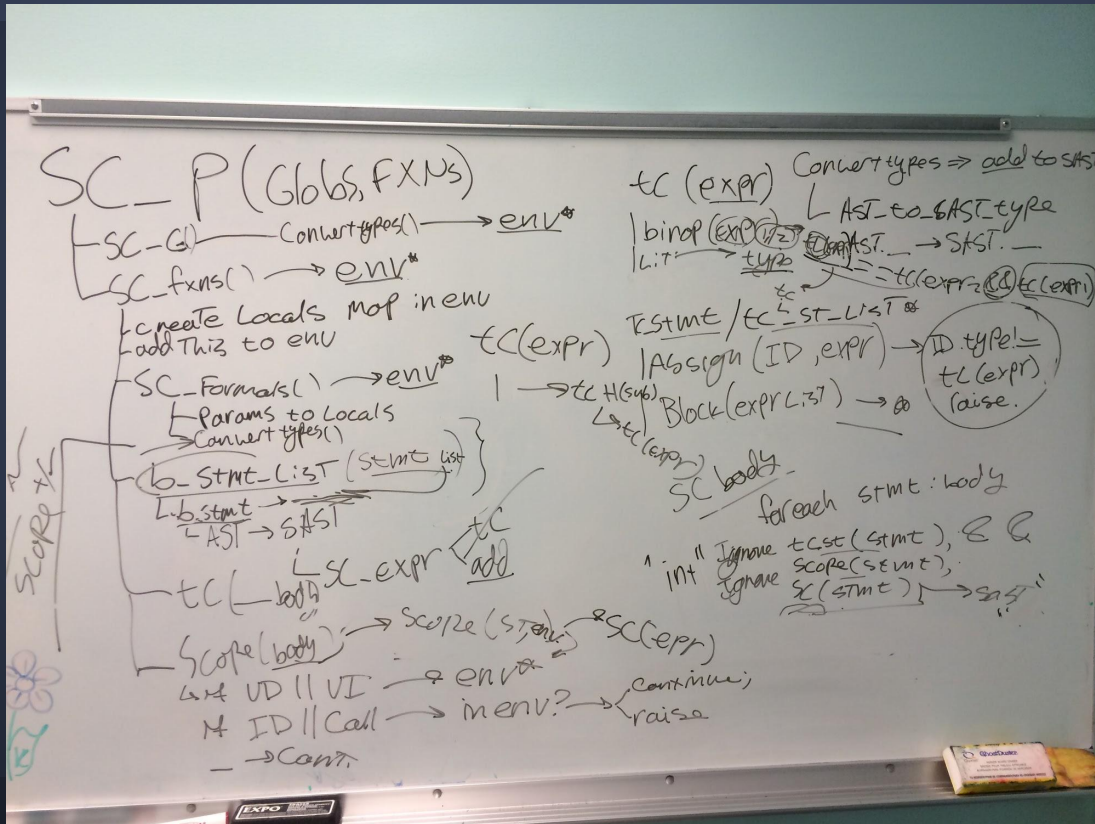 SC_P (Globs, FXNs)
SC_G() Convert types() → env*
SC_fxns() → env*
create Locals Map in env
add This to env
SC_Formals() → env*
Params to Locals
Convert types()
b_stmt_LiST (stmt List)
b_stmt →
AST → SAST
SC_expr tC
add
tC(_body)
Scope(body) → Scope(ST, env) SC(epr)
M VD || VI → env*
M ID || Call → in env? → continue;
raise
_ → Cont.
Scope
tC(expr)
| → tc
tC(expr)
tC (expr)
| binop (EXP 1/2)
| Lit: type
Convert types ⇒ add to SAST
AST_to_SAST_type
AST._ → SAST._
== tC(expr2 && tC(expr1)
tc
TCstmt / tC_ST_LiST *
| Assign (ID, expr) → ID.type !=
tC(expr)
raise.
| Block(expr LiST) → ∞
SC body
foreach stmt : body
"int" Ignore tCst(stmt), &&
Ignore Scope(stmt),
SC(STMT) → SAST"
EXPO
GhostDuster